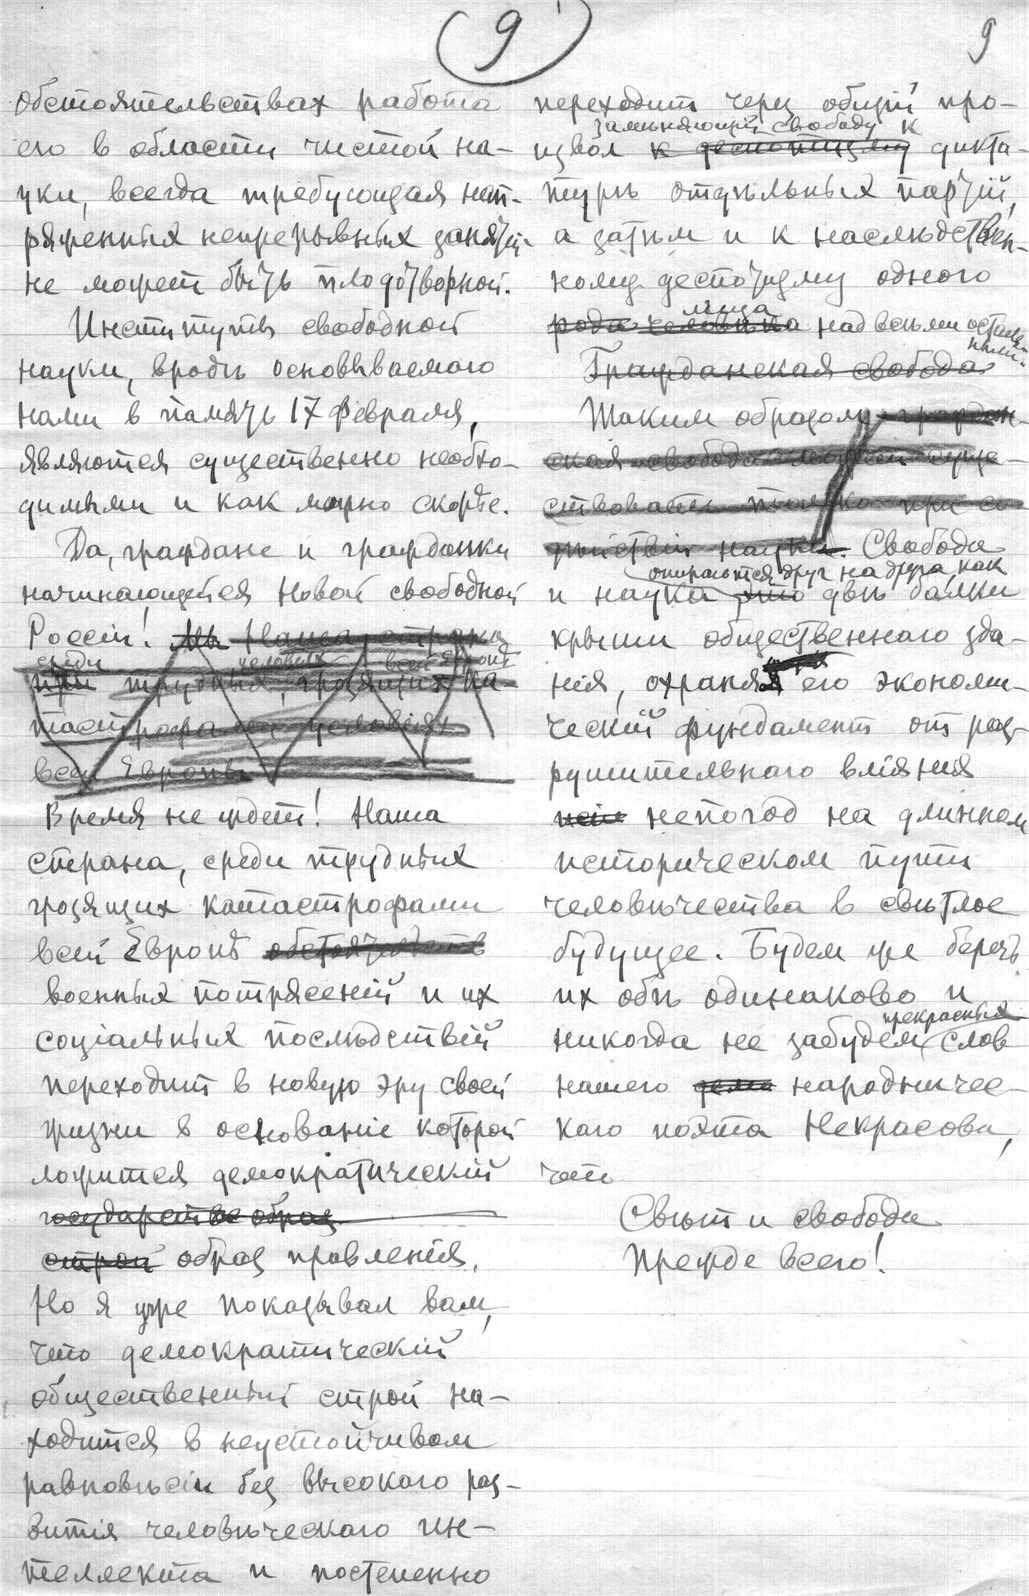 9
9
обстоятельствах работа
его в области чистой на-
уки, всегда требующая нап-
ряженных непрерывных занятій
не может быть плодотворной.
Институты свободной
науки, вродѣ основываемого
нами в память 17 февраля,
являются существенно необхо-
димыми и как можно скорѣе.
Да, граждане и гражданки
начинающейся новой свободной
Россіи! Мы Наша страна
среди условіях всей Европѣ
при трудных, грозящих ка-
тастрофами условіях
всей Европы
Время не ждет! Наша
страна, среди трудных
грозящих катастрофами
всей Европѣ обстоятельств
военных потрясеній и их
соціальных послѣдствій
переходит в новую эру своей
жизни в основаніе которой
ложится демократическій
государстве образ
строй образ правленія.
Но я уже показывал вам,
что демократическій
общественный строй на-
ходится в неустойчивом
равновѣсіи без высокаго раз-
витія человѣческаго ин-
теллекта и постепенно
переходит через общій про-
замѣняющій свободу к
извол к деспотизму дикта-
турѣ отдѣльных партій,
а затѣм и к наслѣдствен-
ному деспотизму одного
лица
рода человѣка над всѣми осталь-
ными.
Гражданская свобода
Таким образом граждан-
ская свобода может суще-
ствовать только при со-
дѣйствіи науки. Свобода
опираются друг на друга, как
и наука это двѣ балки
крыши общественнаго зда-
нія, охраняя его экономи-
ческій фундамент от раз-
рушительнаго вліянія
непогод на длинном
историческом пути
человѣчества в свѣтлое
будущее. Будем же беречь
их обѣ одинаково и
прекрасных
никогда не забудем слов
нашего народничес-
каго поэта Некрасова,
что
Свѣт и свобода
Прежде всего!